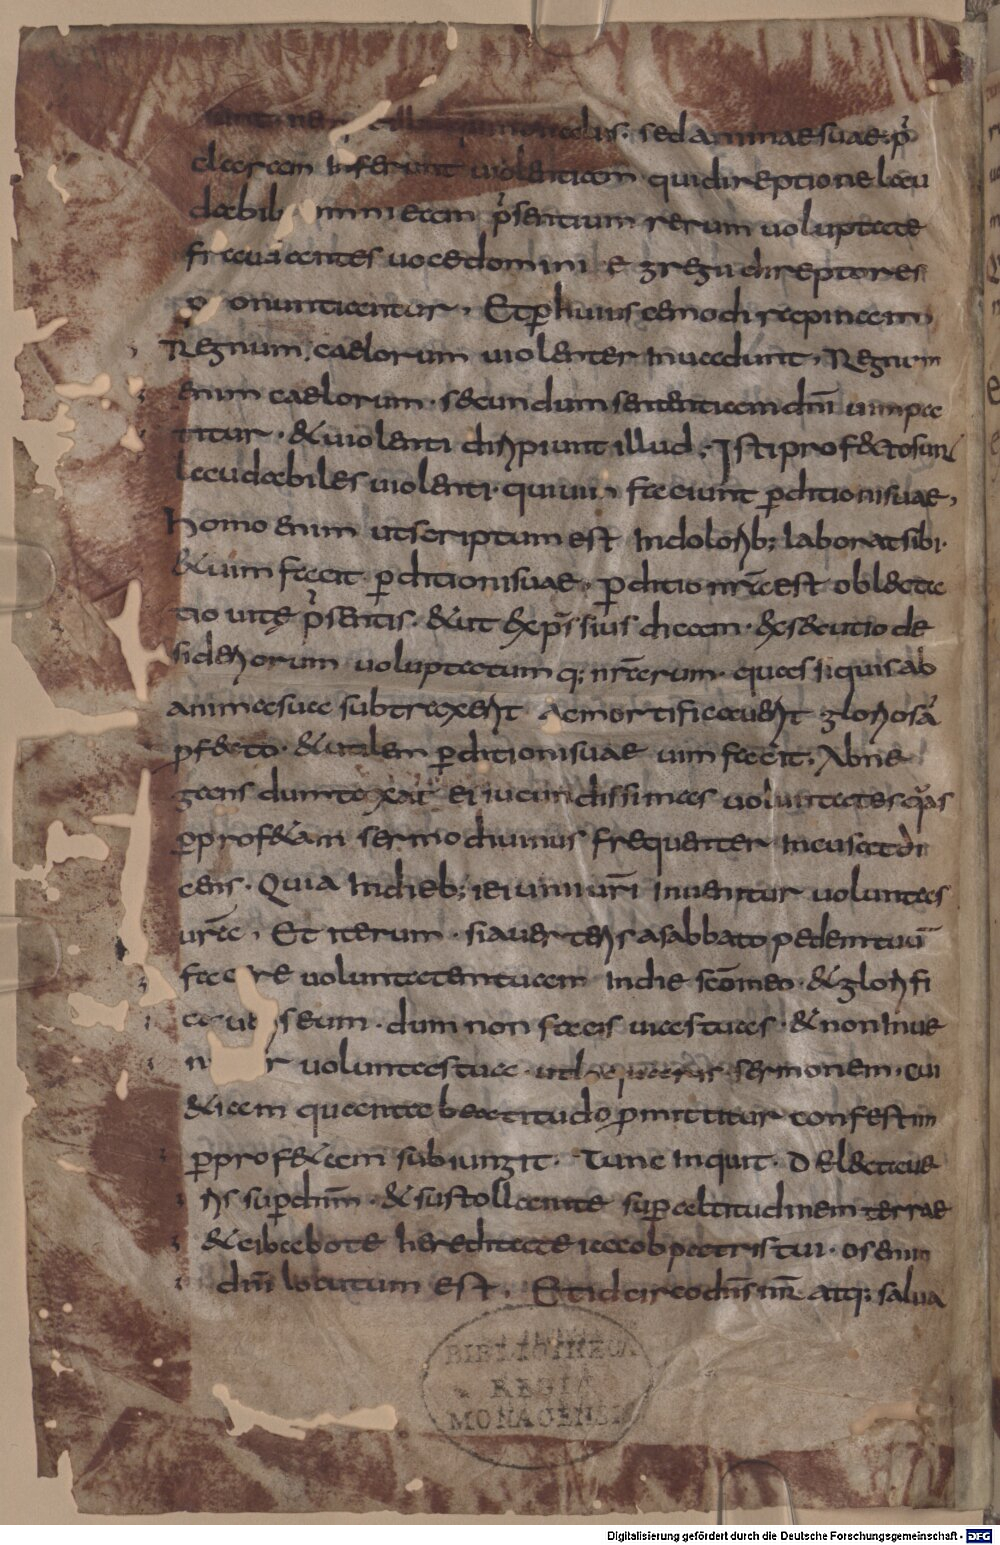 sed animae suae p̄
claram inferunt uiolentiam qui direptione lau
dabili omni etiam p̄sentium rerum uoluptate
uoce domini egregii direptores
pronuntiantur. Et p̱ huiuscemodi rapinam
Regnum caelorum uiolenter inuadunt. Regnum
enim caelorum · secundum sententiam dn̄i uim pa
titur · & uiolenti diripiunt illud. Isti profecto sunt
laudabiles uiolenti · qui uim faciunt p̱ditioni suae,
homo enim ut scriptum est In dolorib; laborat sibi ·
& uim facit p̱ditioni suae. p̱ditio nr̄a est oblecta
tio uitę p̄sentis. & ut exp̄ssius dicam · exsecutio de
sideriorum uoluptatum q; nr̄arum · quas si quis ab
anima sua subtraxerit Ac mortificauerit gloriosā
p̱fecto · & utilem p̱ditioni suae uim facit. Abne
gans dumtaxat ei iucundissimas uoluntates quas
p̱ profetam sermo diuinus frequenter incusat di
cens · Quia In dieb; ieiunii ur̄i Inuenitur uoluntas
ur̄a. Et iterum · si auerteris a sabbato pedem tuū
facere uoluntatem tuam In die sc̄o meo · & glorifi
caueris eum · dum non facis uias tuas · & non Inue
nitur uoluntas tua · ut loquaris sermonem. cui
etiam quanta beatitudo p̱mittitur confestim
p̱ profetam subiungit. Tunc Inquit · Delectaue
ris sup̱ dn̄m · & sustollam te sup̱ altitudinem terrae
& cibabo te hereditate iacob patris tui · os enim
dn̄i locutum est. Et idcirco dn̄s nr̄ atq; salua
BIBLIOTHECA
REGIA
MONACENSIS
Digitalisierung gefördert durch die Deutsche Forschungsgemeinschaft - DFG